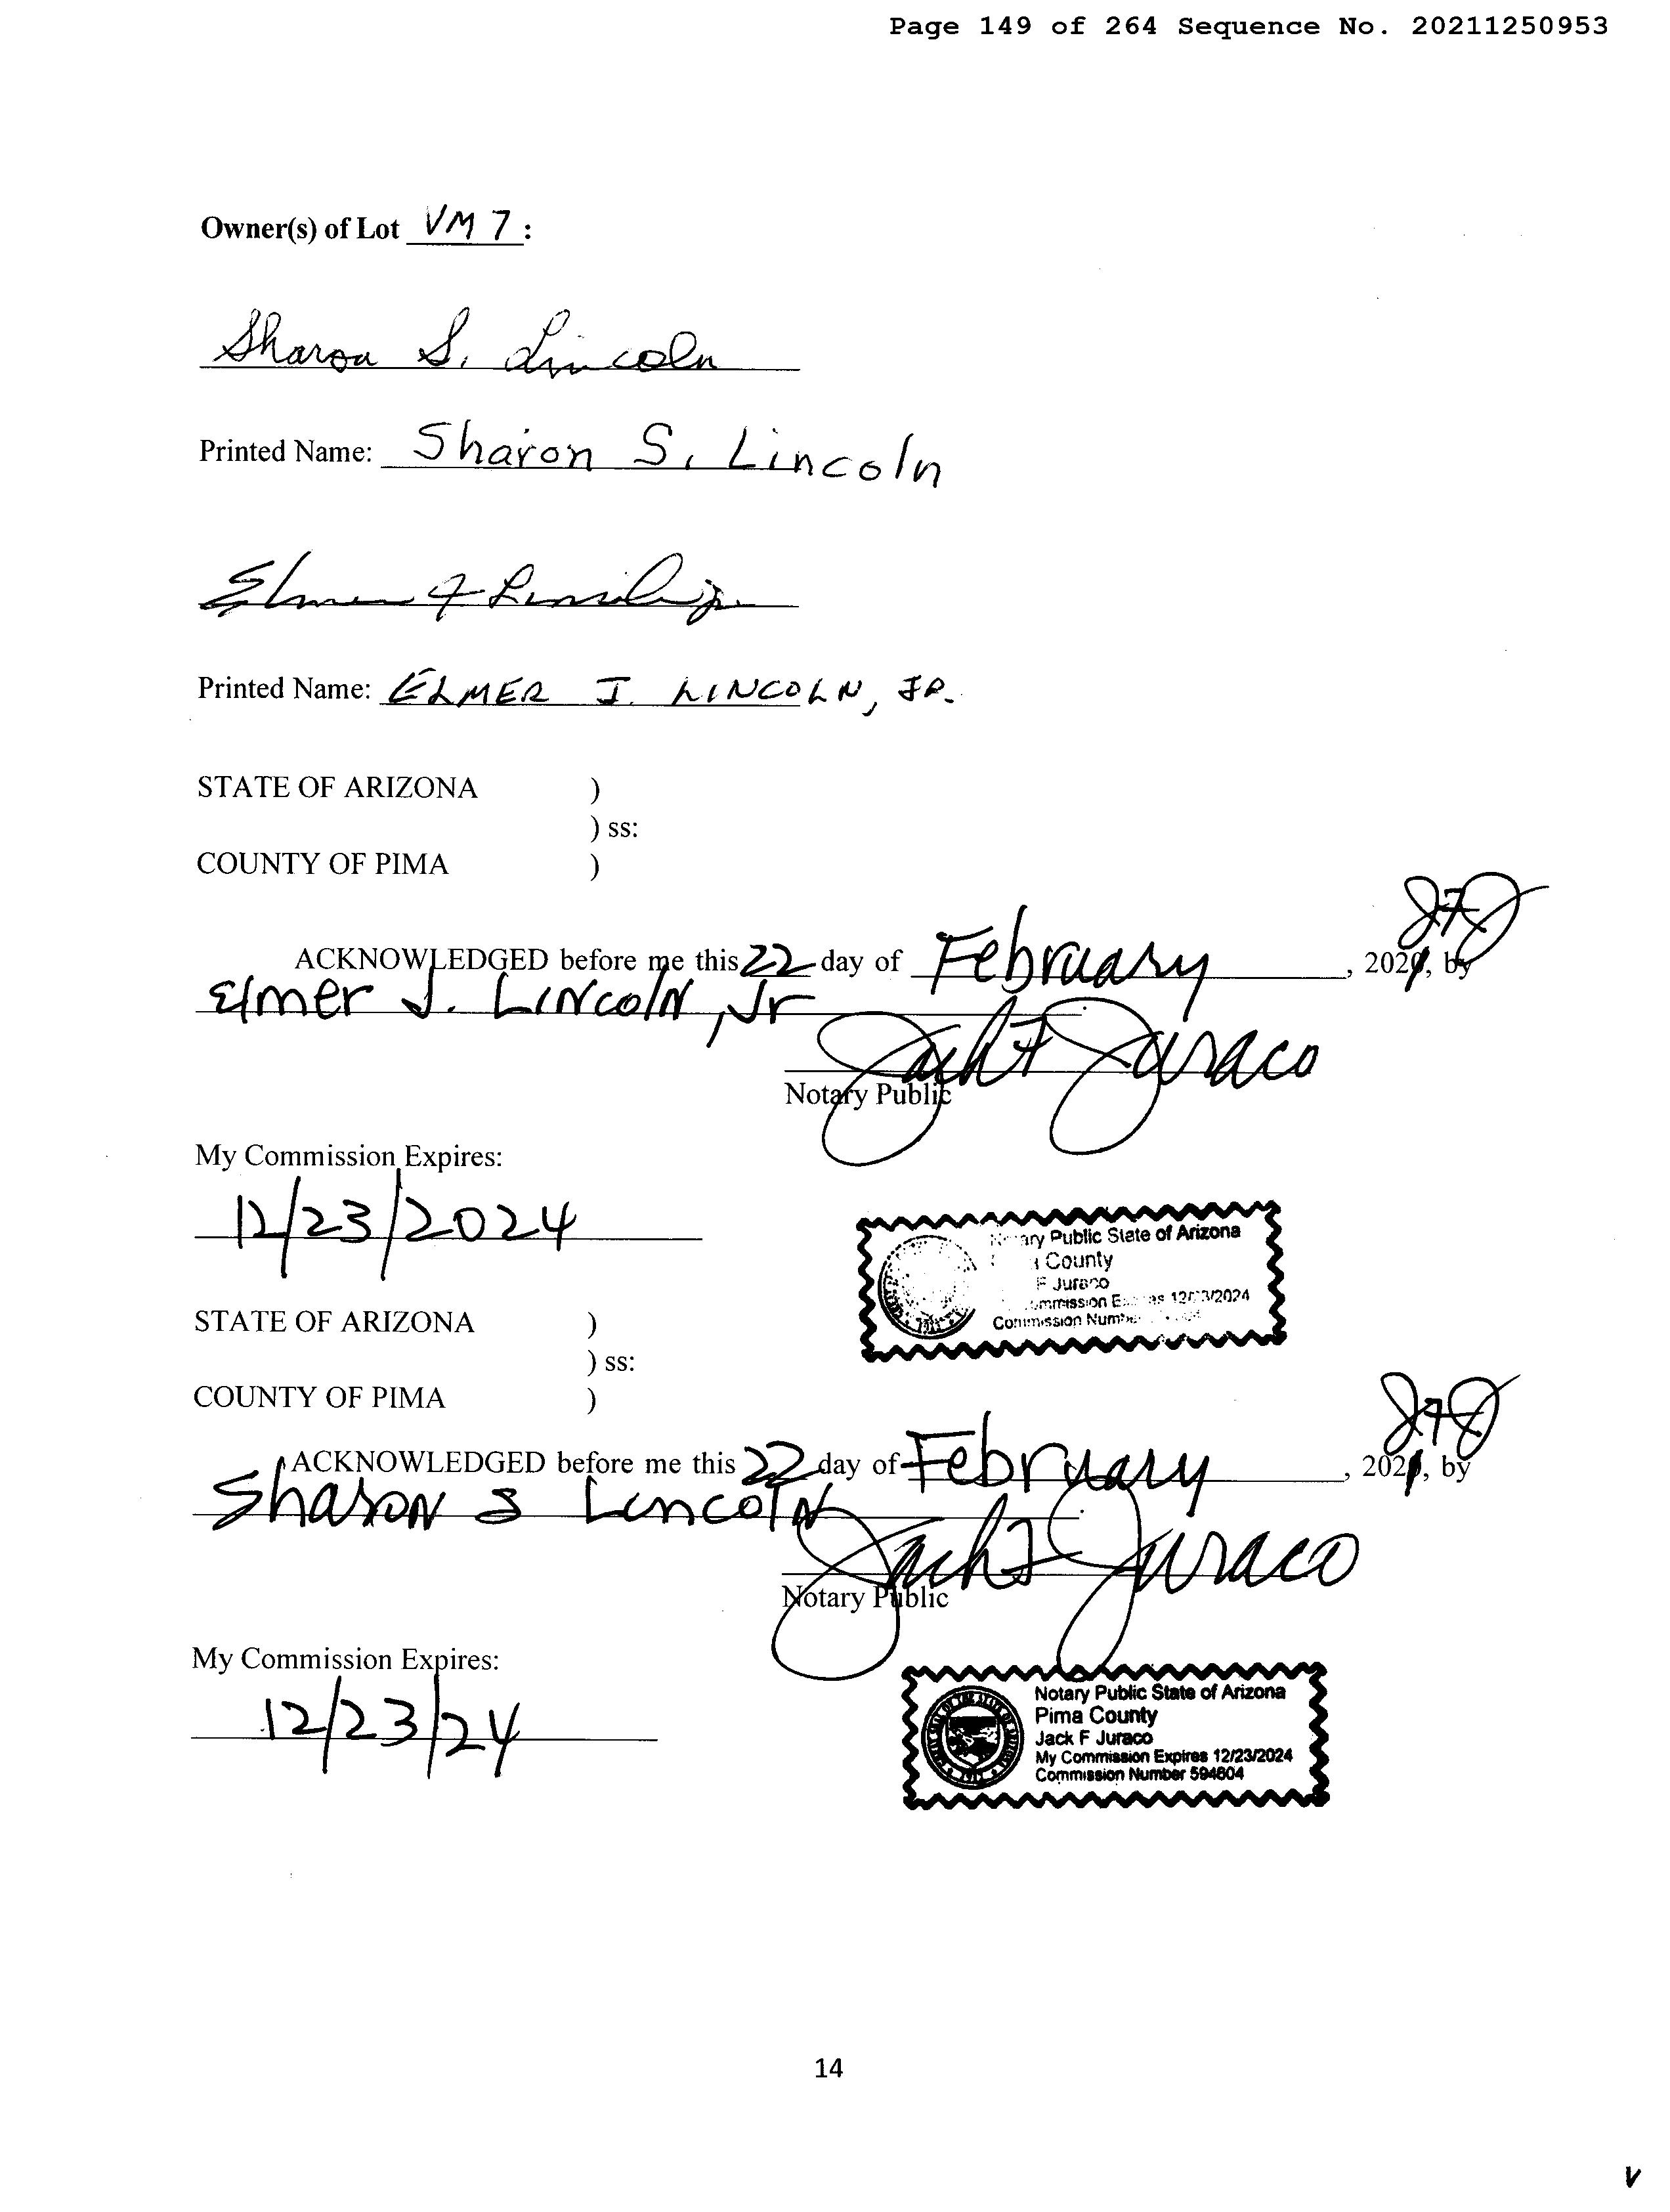 Page 149 of 264 Sequence No. 20211250953
Owner(s) of Lot VM 7:
Sharon S. Lincoln
Printed Name: Sharon S. Lincoln
Elmer J Lincoln Jr.
Printed Name: ELMER J. LINCOLN, JR.
STATE OF ARIZONA )
) ss:
COUNTY OF PIMA )
JFJ
ACKNOWLEDGED before me this 22 day of February, 2021, by
Elmer J. Lincoln, Jr
Jack F Juraco
Notary Public
My Commission Expires:
12/23/2024
Public State of Arizona
County
F Juraco
Commission Number
STATE OF ARIZONA )
) ss:
COUNTY OF PIMA )
JFJ
ACKNOWLEDGED before me this 22 day of February, 2021, by
Sharon S Lincoln
Jack F Juraco
Notary Public
My Commission Expires:
12/23/24
Notary Public State of Arizona
Pima County
Jack F Juraco
My Commission Expires 12/23/2024
Commission Number 594604
14
V